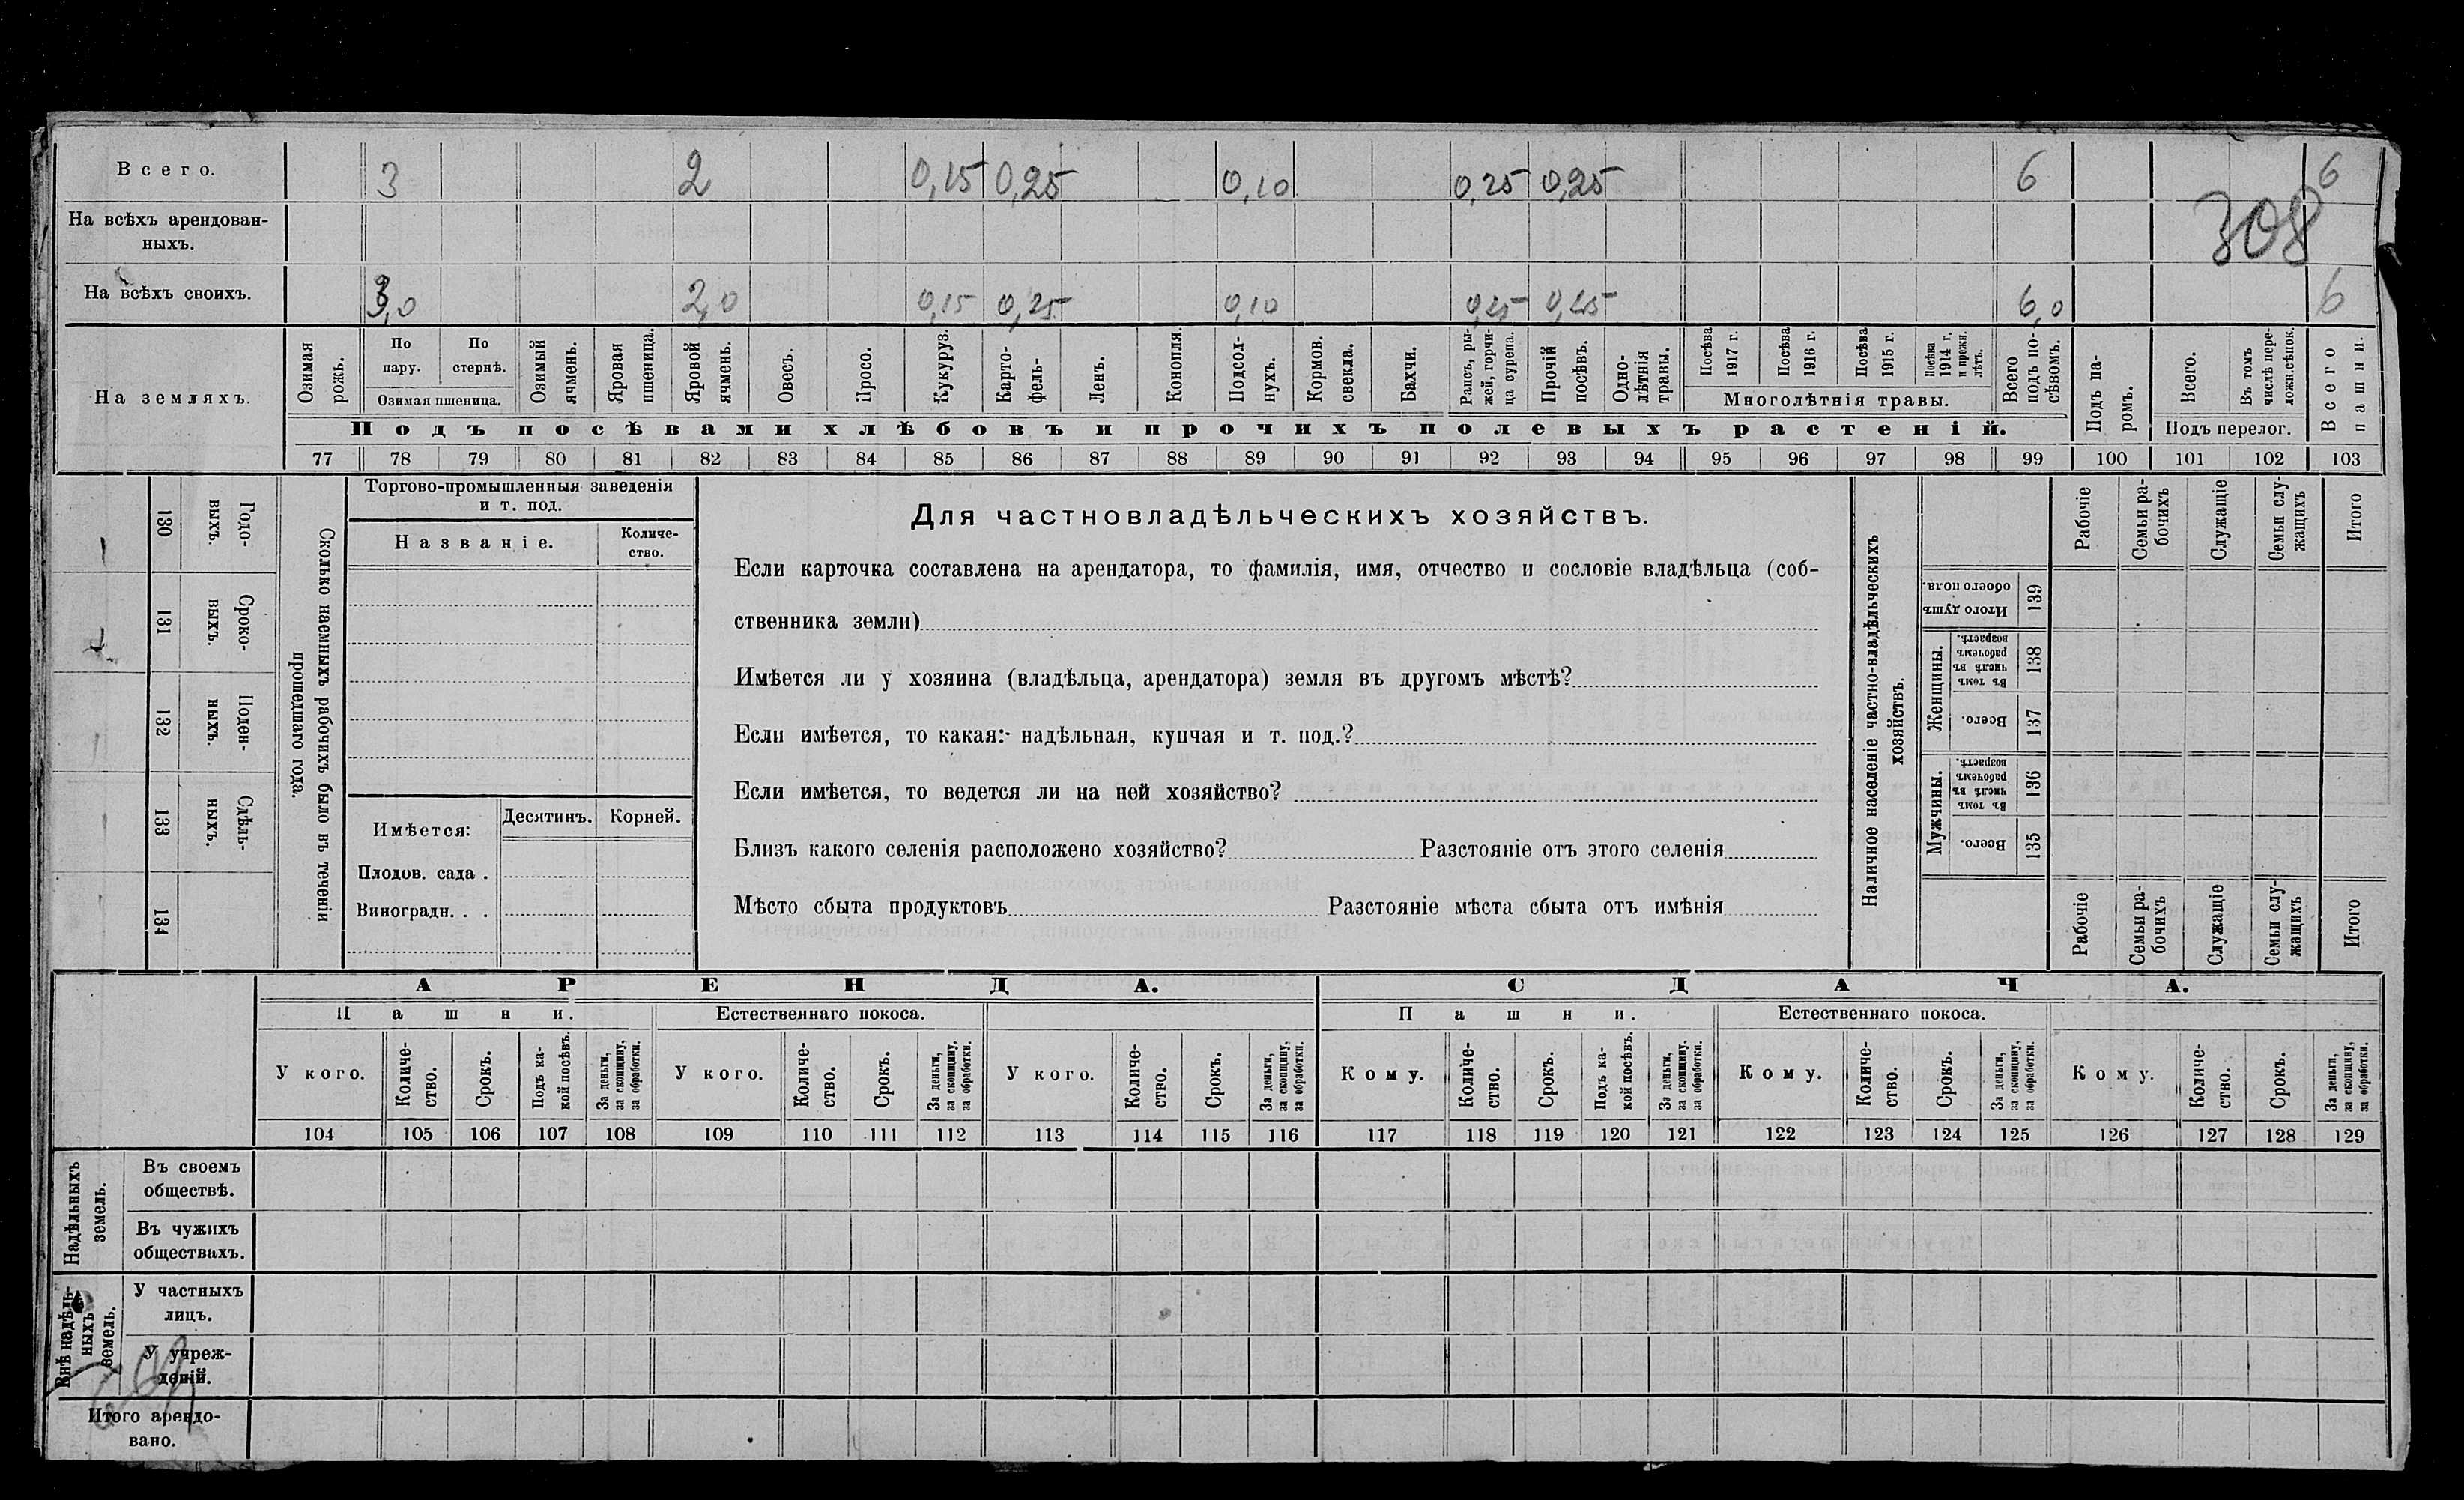 Всего. 3 2 0,15 0,25 0,10 0,25 0,25 6 6
308
На всѣхъ арендован-
ныхъ.
На всѣхъ своихъ. 3,0 2,0 0,15 0,25 0,10 0,25 0,25 6,0 6
На земляхъ.
Озимая рожь.
По пару.
По стернѣ.
Озимая пшеница.
Озимый ячмень.
Яровая пшеница.
Яровой ячмень.
Овесъ.
Просо.
Кукуруз.
Карто-
фель.
Ленъ.
Конопля.
Подсол-
нухъ.
Кормов. свекла.
Бахчи.
Рапсъ, ры-
жей, горчи-
ца сурепа.
Прочій посѣвъ.
Одно-
лѣтнія травы.
Посѣва 1917 г.
Посѣва 1916 г.
Посѣва 1915 г.
Посѣва 1914 г. и прежн. лѣтъ.
Многолѣтнія травы.
Всего подъ по-
сѣвомъ.
Подъ па-
ромъ.
Всего.
Въ томъ числѣ пере-
ложн. сѣнок.
Подъ перелог.
Всего пашни.
Подъ посѣвами хлѣбовъ и прочихъ полевыхъ растеній.
77 78 79 80 81 82 83 84 85 86 87 88 89 90 91 92 93 94 95 96 97 98 99 100 101 102 103
130 Годо-
выхъ.
131 Сроко-
выхъ.
132 Поден-
ныхъ.
133 Сдѣль-
ныхъ.
134
Сколько наемныхъ рабочихъ было въ теченіи
прошедшаго года.
Торгово-промышленныя заведенія
и т. под.
Названіе.
Количе-
ство.
Имѣется:
Десятинъ. Корней.
Плодов. сада .
Виноградн. . .
Для частновладѣльческихъ хозяйствъ.
Если карточка составлена на арендатора, то фамилія, имя, отчество и сословіе владѣльца (соб-
ственника земли)
Имѣется ли у хозяина (владѣльца, арендатора) земля въ другомъ мѣстѣ?
Если имѣется, то какая:- надѣльная, купчая и т. под.?
Если имѣется, то ведется ли на ней хозяйство?
Близъ какого селенія расположено хозяйство? Разстояніе отъ этого селенія
Мѣсто сбыта продуктовъ Разстояніе мѣста сбыта отъ имѣнія
Наличное населеніе частно-владѣльческихъ
хозяйствъ.
Рабочіе
Семьи ра-
бочихъ
Служащіе
Семьи слу-
жащихъ
Итого
Итого душъ обоего пола. 139
Женщины.
Въ томъ числѣ въ рабочемъ возрастѣ. 138
Всего. 137
Мужчины.
Въ томъ числѣ въ рабочемъ возрастѣ. 136
Всего. 135
Рабочіе
Семьи ра-
бочихъ
Служащіе
Семьи слу-
жащихъ
Итого
АРЕНДА. СДАЧА.
Пашни. Естественнаго покоса. Пашни. Естественнаго покоса.
У кого.
Количе-
ство.
Срокъ.
Подъ ка-
кой посѣвъ.
За деньги, за скопщину, за обработки.
У кого.
Количе-
ство.
Срокъ.
За деньги, за скопщину, за обработки.
У кого.
Количе-
ство.
Срокъ.
За деньги, за скопщину, за обработки.
Кому.
Количе-
ство.
Срокъ.
Подъ ка-
кой посѣвъ.
За деньги, за скопщину, за обработки.
Кому.
Количе-
ство.
Срокъ.
За деньги, за скопщину, за обработки.
Кому.
Количе-
ство.
Срокъ.
За деньги, за скопщину, за обработки.
104 105 106 107 108 109 110 111 112 113 114 115 116 117 118 119 120 121 122 123 124 125 126 127 128 129
Надѣльныхъ земель.
Въ своемъ
обществѣ.
Въ чужихъ
обществахъ.
Внѣ надѣль-
ныхъ земель.
У частныхъ
лицъ.
У учреж-
деній.
Итого арендо-
вано.